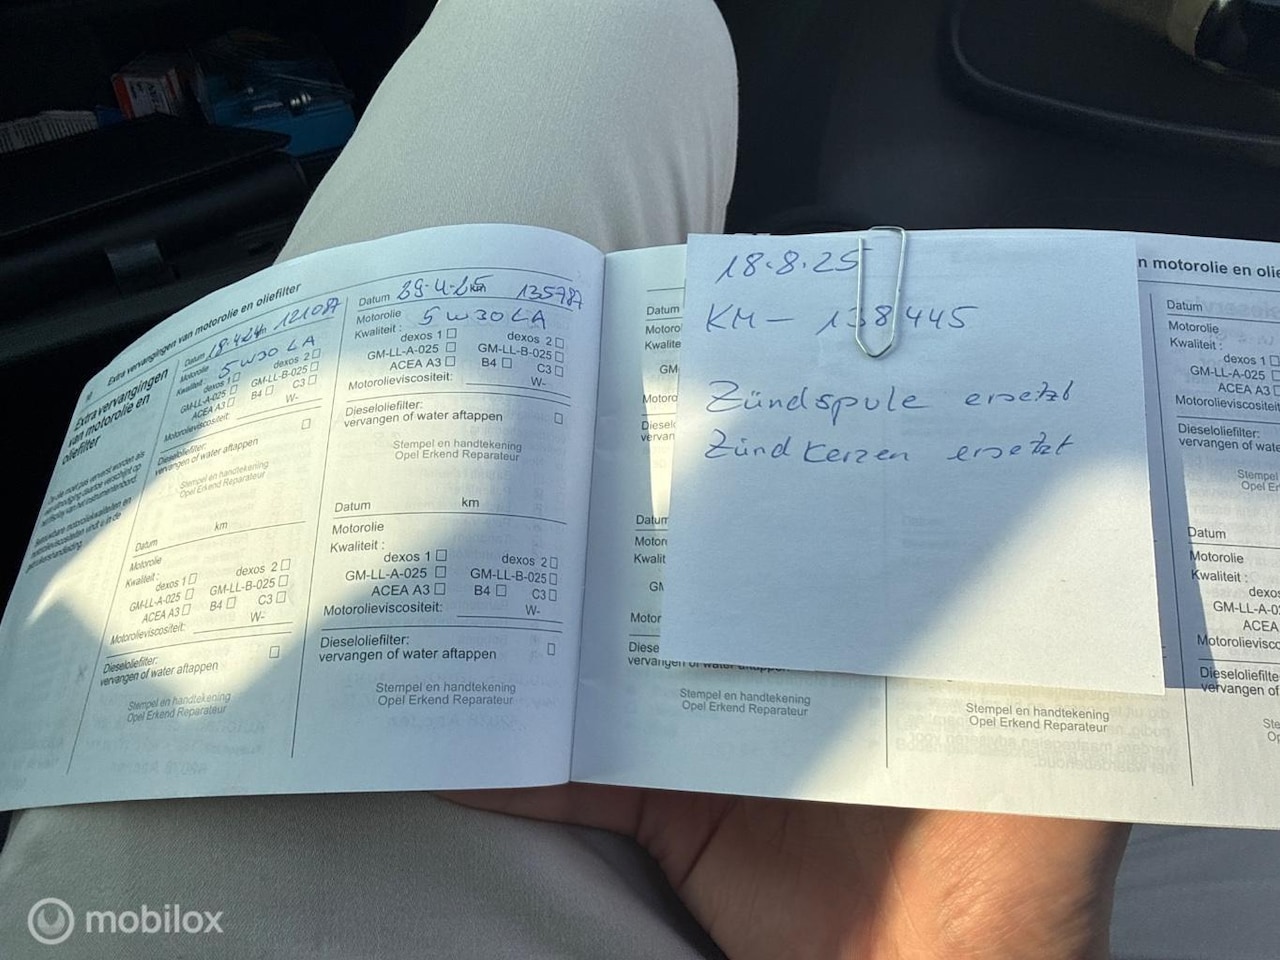 Extra vervangen van motorolie en oliefilter
Extra vervangingen
van motorolie en
oliefilter
Datum 18-4-24 121087
Motorolie 5W30 LA
Kwaliteit :
dexos 1 ☐ dexos 2 ☐
GM-LL-A-025 ☐ GM-LL-B-025 ☐
ACEA A3 ☐ B4 ☐ C3 ☐
Motorolieviscositeit: W-
Dieseloliefilter:
vervangen of water aftappen ☐
Stempel en handtekening
Opel Erkend Reparateur
Datum km
Motorolie
Kwaliteit :
dexos 1 ☐ dexos 2 ☐
GM-LL-A-025 ☐ GM-LL-B-025 ☐
ACEA A3 ☐ B4 ☐ C3 ☐
Motorolieviscositeit: W-
Dieseloliefilter:
vervangen of water aftappen ☐
Stempel en handtekening
Opel Erkend Reparateur
Datum 29-4-25 km 135787
Motorolie 5W30 LA
Kwaliteit :
dexos 1 ☐ dexos 2 ☐
GM-LL-A-025 ☐ GM-LL-B-025 ☐
ACEA A3 ☐ B4 ☐ C3 ☐
Motorolieviscositeit: W-
Dieseloliefilter:
vervangen of water aftappen ☐
Stempel en handtekening
Opel Erkend Reparateur
Datum km
Motorolie
Kwaliteit :
dexos 1 ☐ dexos 2 ☐
GM-LL-A-025 ☐ GM-LL-B-025 ☐
ACEA A3 ☐ B4 ☐ C3 ☐
Motorolieviscositeit: W-
Dieseloliefilter:
vervangen of water aftappen ☐
Stempel en handtekening
Opel Erkend Reparateur
18.8.25
KM- 138445
Zündspule ersetzt
Zündkerzen ersetzt
Datum
Motorol
Kwalite
GM
Motoro
Diesel
vervan
Datum
Motor
Kwalit
GM
Motor
Diese
vervangen of water aftappen
Stempel en handtekening
Opel Erkend Reparateur
Stempel en handtekening
Opel Erkend Reparateur
n motorolie en olie
Datum
Motorolie
Kwaliteit :
dexos 1 ☐
GM-LL-A-025 ☐
ACEA A3 ☐
Motorolieviscosit
Dieseloliefilter:
vervangen of wat
Stemp
Opel Er
Datum
Motorolie
Kwaliteit :
dexos 1
GM-LL-A-02
ACEA
Motorolievisco
Dieseloliefilte
vervangen of
Ste
Op
mobilox